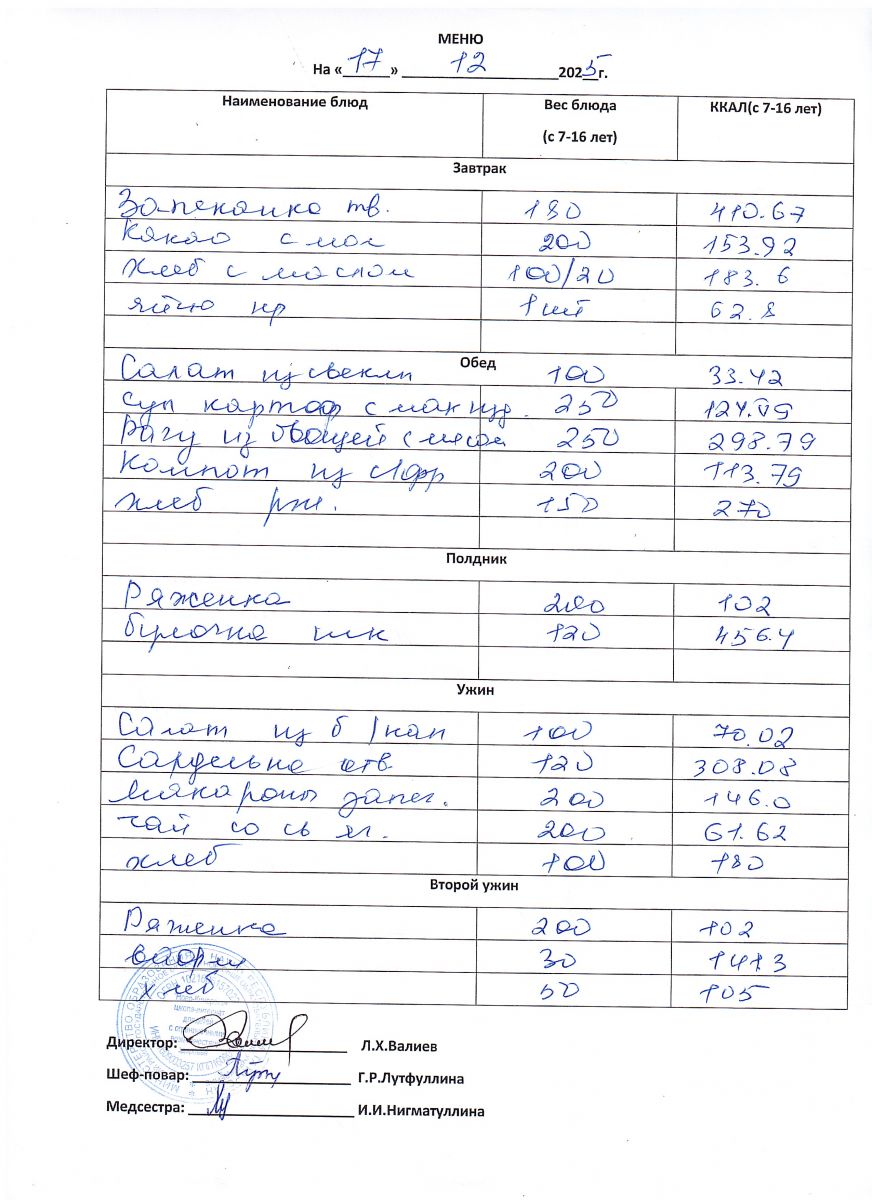 МЕНЮ
На «17» 12 2025г.
Наименование блюд Вес блюда (с 7-16 лет) ККАЛ(с 7-16 лет)
Завтрак
Запеканка тв. 180 410.67
Какао с мол 200 153.92
Хлеб с маслом 100/20 183.6
яйцо 1 шт 62.8
Обед
Салат из свеклы 100 33.42
Суп картоф с мак изд. 250 124.09
Рагу из овощей с мясом 250 298.79
Компот из с/фр 200 113.79
хлеб рж. 150 270
Полдник
Ряженка 200 102
булочка шк 120 456.4
Ужин
Салат из б/кап 100 70.02
Сарделька отв 120 308.08
Макароны запеч. 200 146.0
чай со св яг. 200 61.62
хлеб 100 180
Второй ужин
Ряженка 200 102
30 141.3
хлеб 50 105
Директор: Л.Х.Валиев
Шеф-повар: Г.Р.Лутфуллина
Медсестра: И.И.Нигматуллина